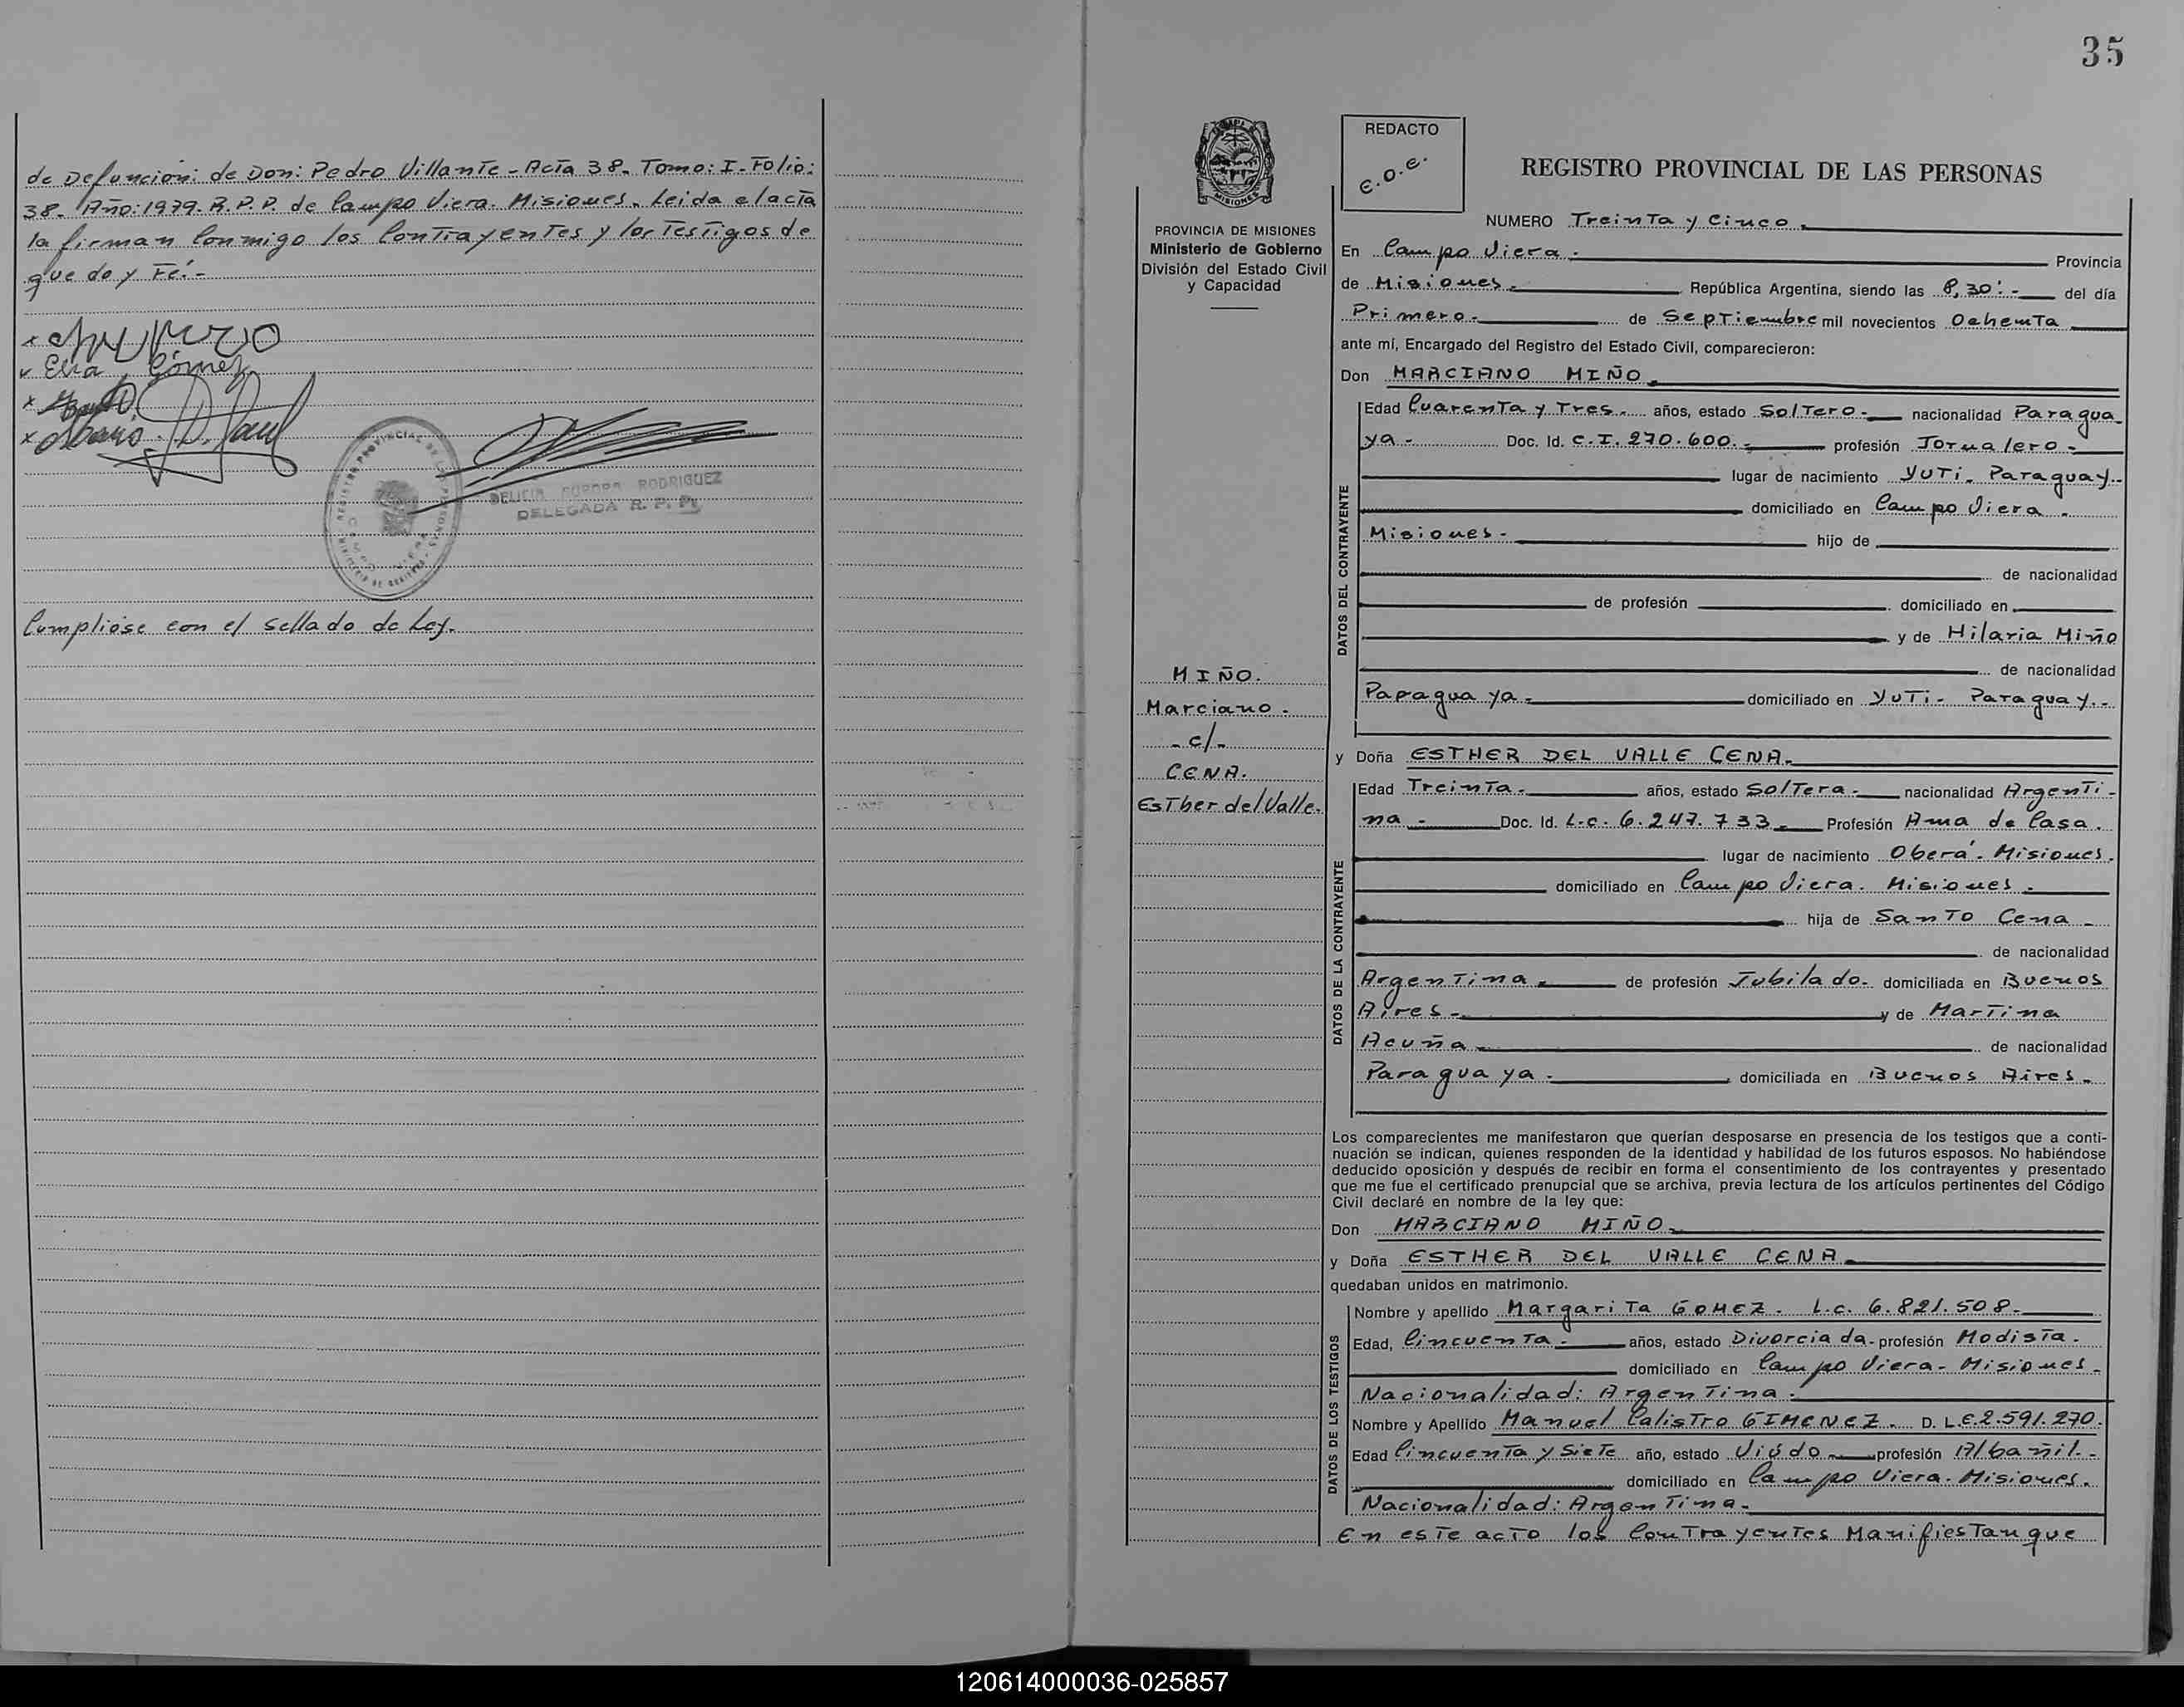 de Defunción: de Don: Pedro Villante - Acta 38. Tomo: I. Folio:
38. Año: 1979. R.P.P. de Campo Viera. Misiones. Leida el acta
la firman Conmigo los Contrayentes y los Testigos de
que doy Fé.-
Elva Gómez
REGISTRO PROVINCIAL DE LAS PERSONAS
DELICIA AURORA RODRIGUEZ
DELEGADA R. P. P.
Cumpliose con el sellado de Ley.
35
REDACTO
E.O.E.
REGISTRO PROVINCIAL DE LAS PERSONAS
MISIONES
PROVINCIA DE MISIONES
Ministerio de Gobierno
División del Estado Civil
y Capacidad
MIÑO.
Marciano.
- c/-
CENA.
Esther del Valle.
NUMERO Treinta y Cinco.
En Campo Viera. Provincia
de Misiones. República Argentina, siendo las 8,30:- del día
Primero. de Septiembre mil novecientos Ochenta
ante mí, Encargado del Registro del Estado Civil, comparecieron:
Don MARCIANO MIÑO.
DATOS DEL CONTRAYENTE
Edad Cuarenta y Tres. años, estado Soltero. nacionalidad Paragua-
ya - Doc. Id. C.I. 270.600.- profesión Jornalero -
lugar de nacimiento Yuti. Paraguay.-
domiciliado en Campo Viera -
Misiones - hijo de
de nacionalidad
de profesión domiciliado en
y de Hilaria Miño
de nacionalidad
Paraguaya - domiciliado en Yuti - Paraguay.-
y Doña ESTHER DEL VALLE CENA.
DATOS DE LA CONTRAYENTE
Edad Treinta. años, estado Soltera. nacionalidad Argenti-
na - Doc. Id. L.C. 6.247.733. Profesión Ama de Casa.
lugar de nacimiento Oberá. Misiones.
domiciliado en Campo Viera. Misiones -
hija de Santo Cena -
de nacionalidad
Argentina. de profesión Jubilado. domiciliada en Buenos
Aires - y de Martina
Acuña. de nacionalidad
Paraguaya - domiciliada en Buenos Aires.
Los comparecientes me manifestaron que querían desposarse en presencia de los testigos que a conti-
nuación se indican, quienes responden de la identidad y habilidad de los futuros esposos. No habiéndose
deducido oposición y después de recibir en forma el consentimiento de los contrayentes y presentado
que me fue el certificado prenupcial que se archiva, previa lectura de los artículos pertinentes del Código
Civil declaré en nombre de la ley que:
Don MARCIANO MIÑO.
y Doña ESTHER DEL VALLE CENA.
quedaban unidos en matrimonio.
DATOS DE LOS TESTIGOS
Nombre y apellido Margarita GOMEZ. L.C. 6.821.508.
Edad, Cincuenta. años, estado Divorciada. profesión Modista.
domiciliado en Campo Viera - Misiones -
Nacionalidad: Argentina.
Nombre y Apellido Manuel Calistro GIMENEZ. D.L.E. 2.591.270.
Edad Cincuenta y Siete año, estado Viúdo. profesión Albañil.-
domiciliado en Campo Viera. Misiones.
Nacionalidad: Argentina.
En este acto los Contrayentes Manifiestan que
120614000036-025857